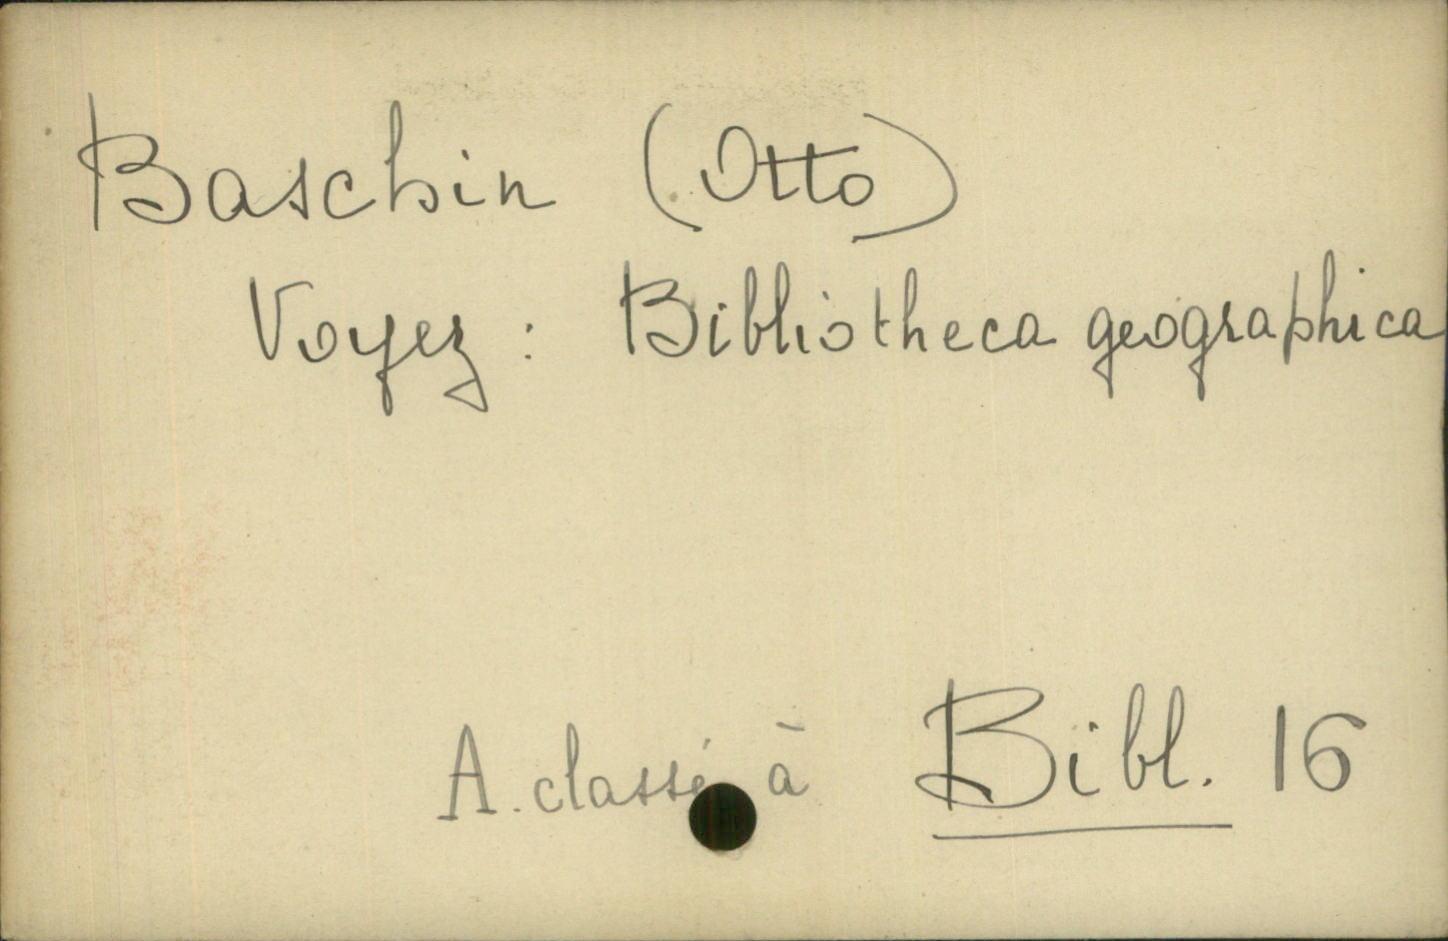 Baschin (Otto)
Voyez : Bibliotheca geographica
A. classé à Bibl. 16